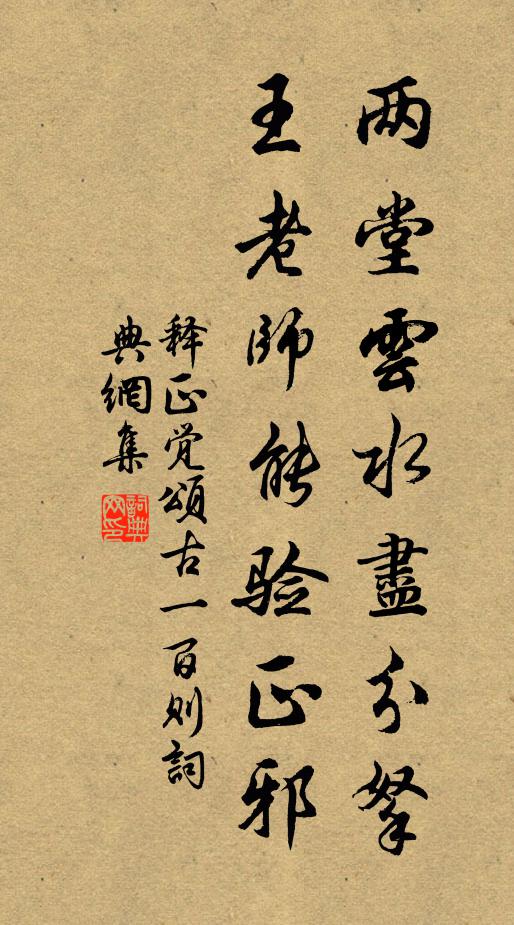 两堂雲水盡分拏
王老師能验正邪
释正觉頌古一百则詞
典網集
詞典网印